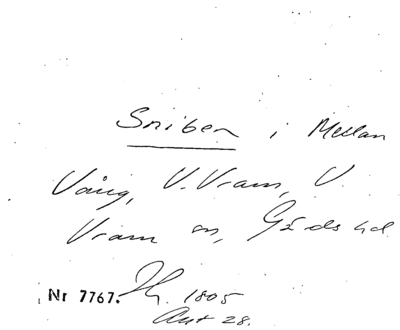 Sniben i Mellan
Vång, V. Vram, V.
Vram sn, Gärds hd
Nr 7767. 1805
Ant 28.